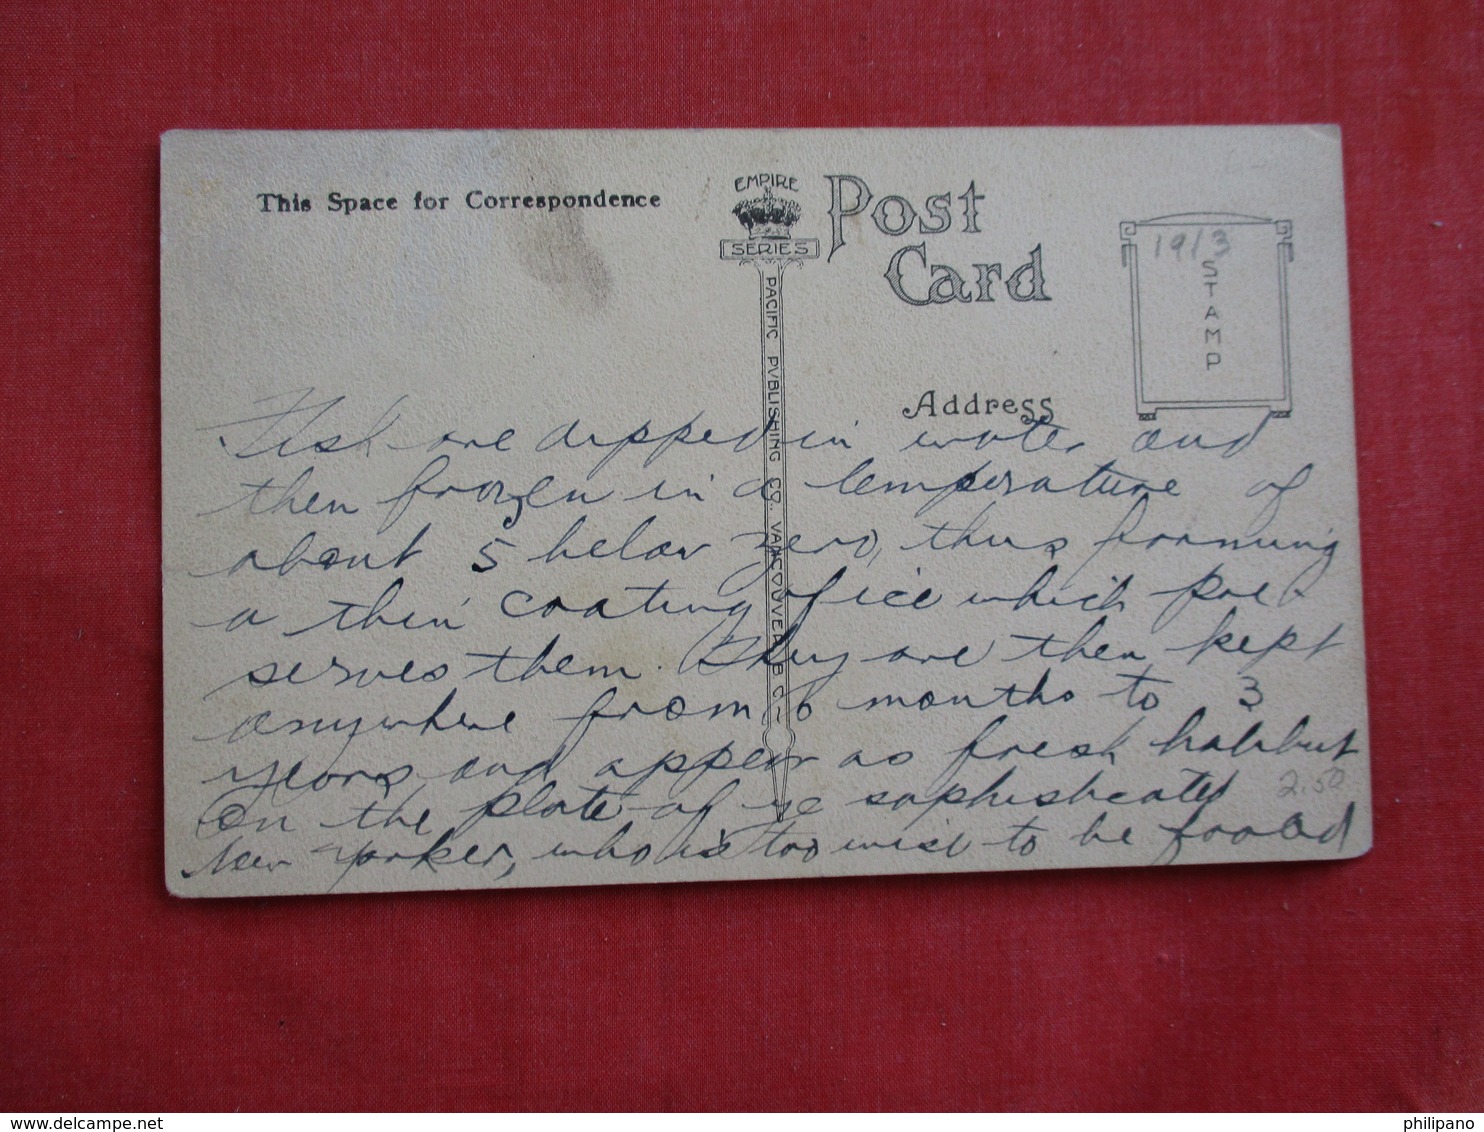 This Space for Correspondence
EMPIRE
SERIES
PACIFIC PVBLISHING CO. VANCOUVER B C
Post
Card
1913
STAMP
Address
Fish are dipped in water and
then frozen in a temperature of
about 5 below zero, thus forming
a thin coating of ice which pre-
serves them. They are then kept
anywhere from 6 months to 3
years and appear as fresh halibut
on the plate of ye sophisticated
2.50
New Yorker, who is too wise to be fooled
philipano